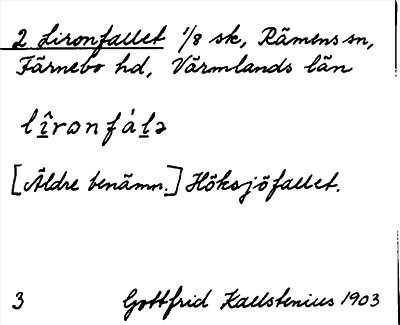 2 Lironfallet 1/8 sk, Rämens sn,
Färnebo hd, Värmlands län
lî̱ronfáḻə
[Äldre benämn.] Höksjöfallet.
3 Gottfrid Kallstenius 1903